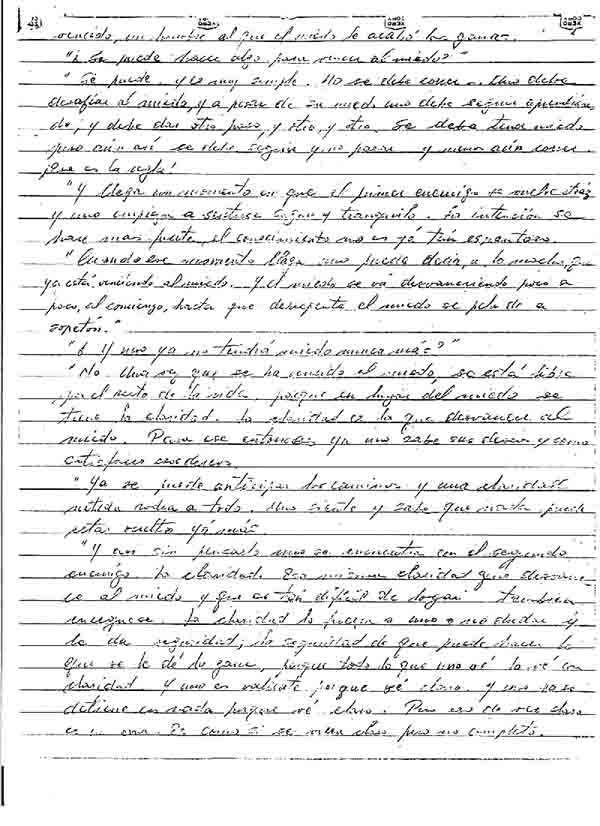 vencido, un hombre al que el miedo le acabó las ganas.
"¿ Se puede hacer algo para vencer al miedo?"
"Se puede. Y es muy simple. No se debe correr. Uno debe
desafiar al miedo, y a pesar de su miedo uno debe seguir aprendien-
do, y debe dar otro paso, y otro, y otro. Se debe tener miedo
pero aún así se debe seguir y no parar y menos aún correr.
¡Que es la regla!
"Y llega un momento en que el primer enemigo se vuelve atráz
y uno empieza a sentirse seguro y tranquilo. La intención se
hace mas fuerte, el conocimiento no es yá tán espantoso.
"Cuando ese momento llega uno puede decir, a lo macho, que
ya está venciendo al miedo. Y el miedo se va desvaneciendo poco a
poco, al comienzo, hasta que derrepente el miedo se pela de a
sopetón."
"¿ Y uno ya no tendrá miedo nunca más?"
"No. Una vez que se ha vencido al miedo, se está libre
por el resto de la vida, porque en lugar del miedo se
tiene la claridad. La claridad es la que desvanece al
miedo. Para ese entonces ya uno sabe sus deseos y como
satisfacer esos deseos.
"Ya se puede anticipar los caminos y una claridad
nítida rodea a todo. Uno siente y sabe que nada puede
estar oculto yá más.
"Y aun sin pensarlo uno se encuentra con el segundo
enemigo. La claridad. Esa misma claridad que desvane-
ce al miedo y que es tán difícil de lograr tambien
enceguece. La claridad lo fuerza a uno a no dudar y
le da seguridad; la seguridad de que puede hacer lo
que se le dé la gana, porque todo lo que uno vé lo vé con
claridad. Y uno es valiente porque vé claro. Y uno no se
detiene en nada porque vé claro. Pero eso de ver claro
es un error. Es como si se viera claro pero no completo.